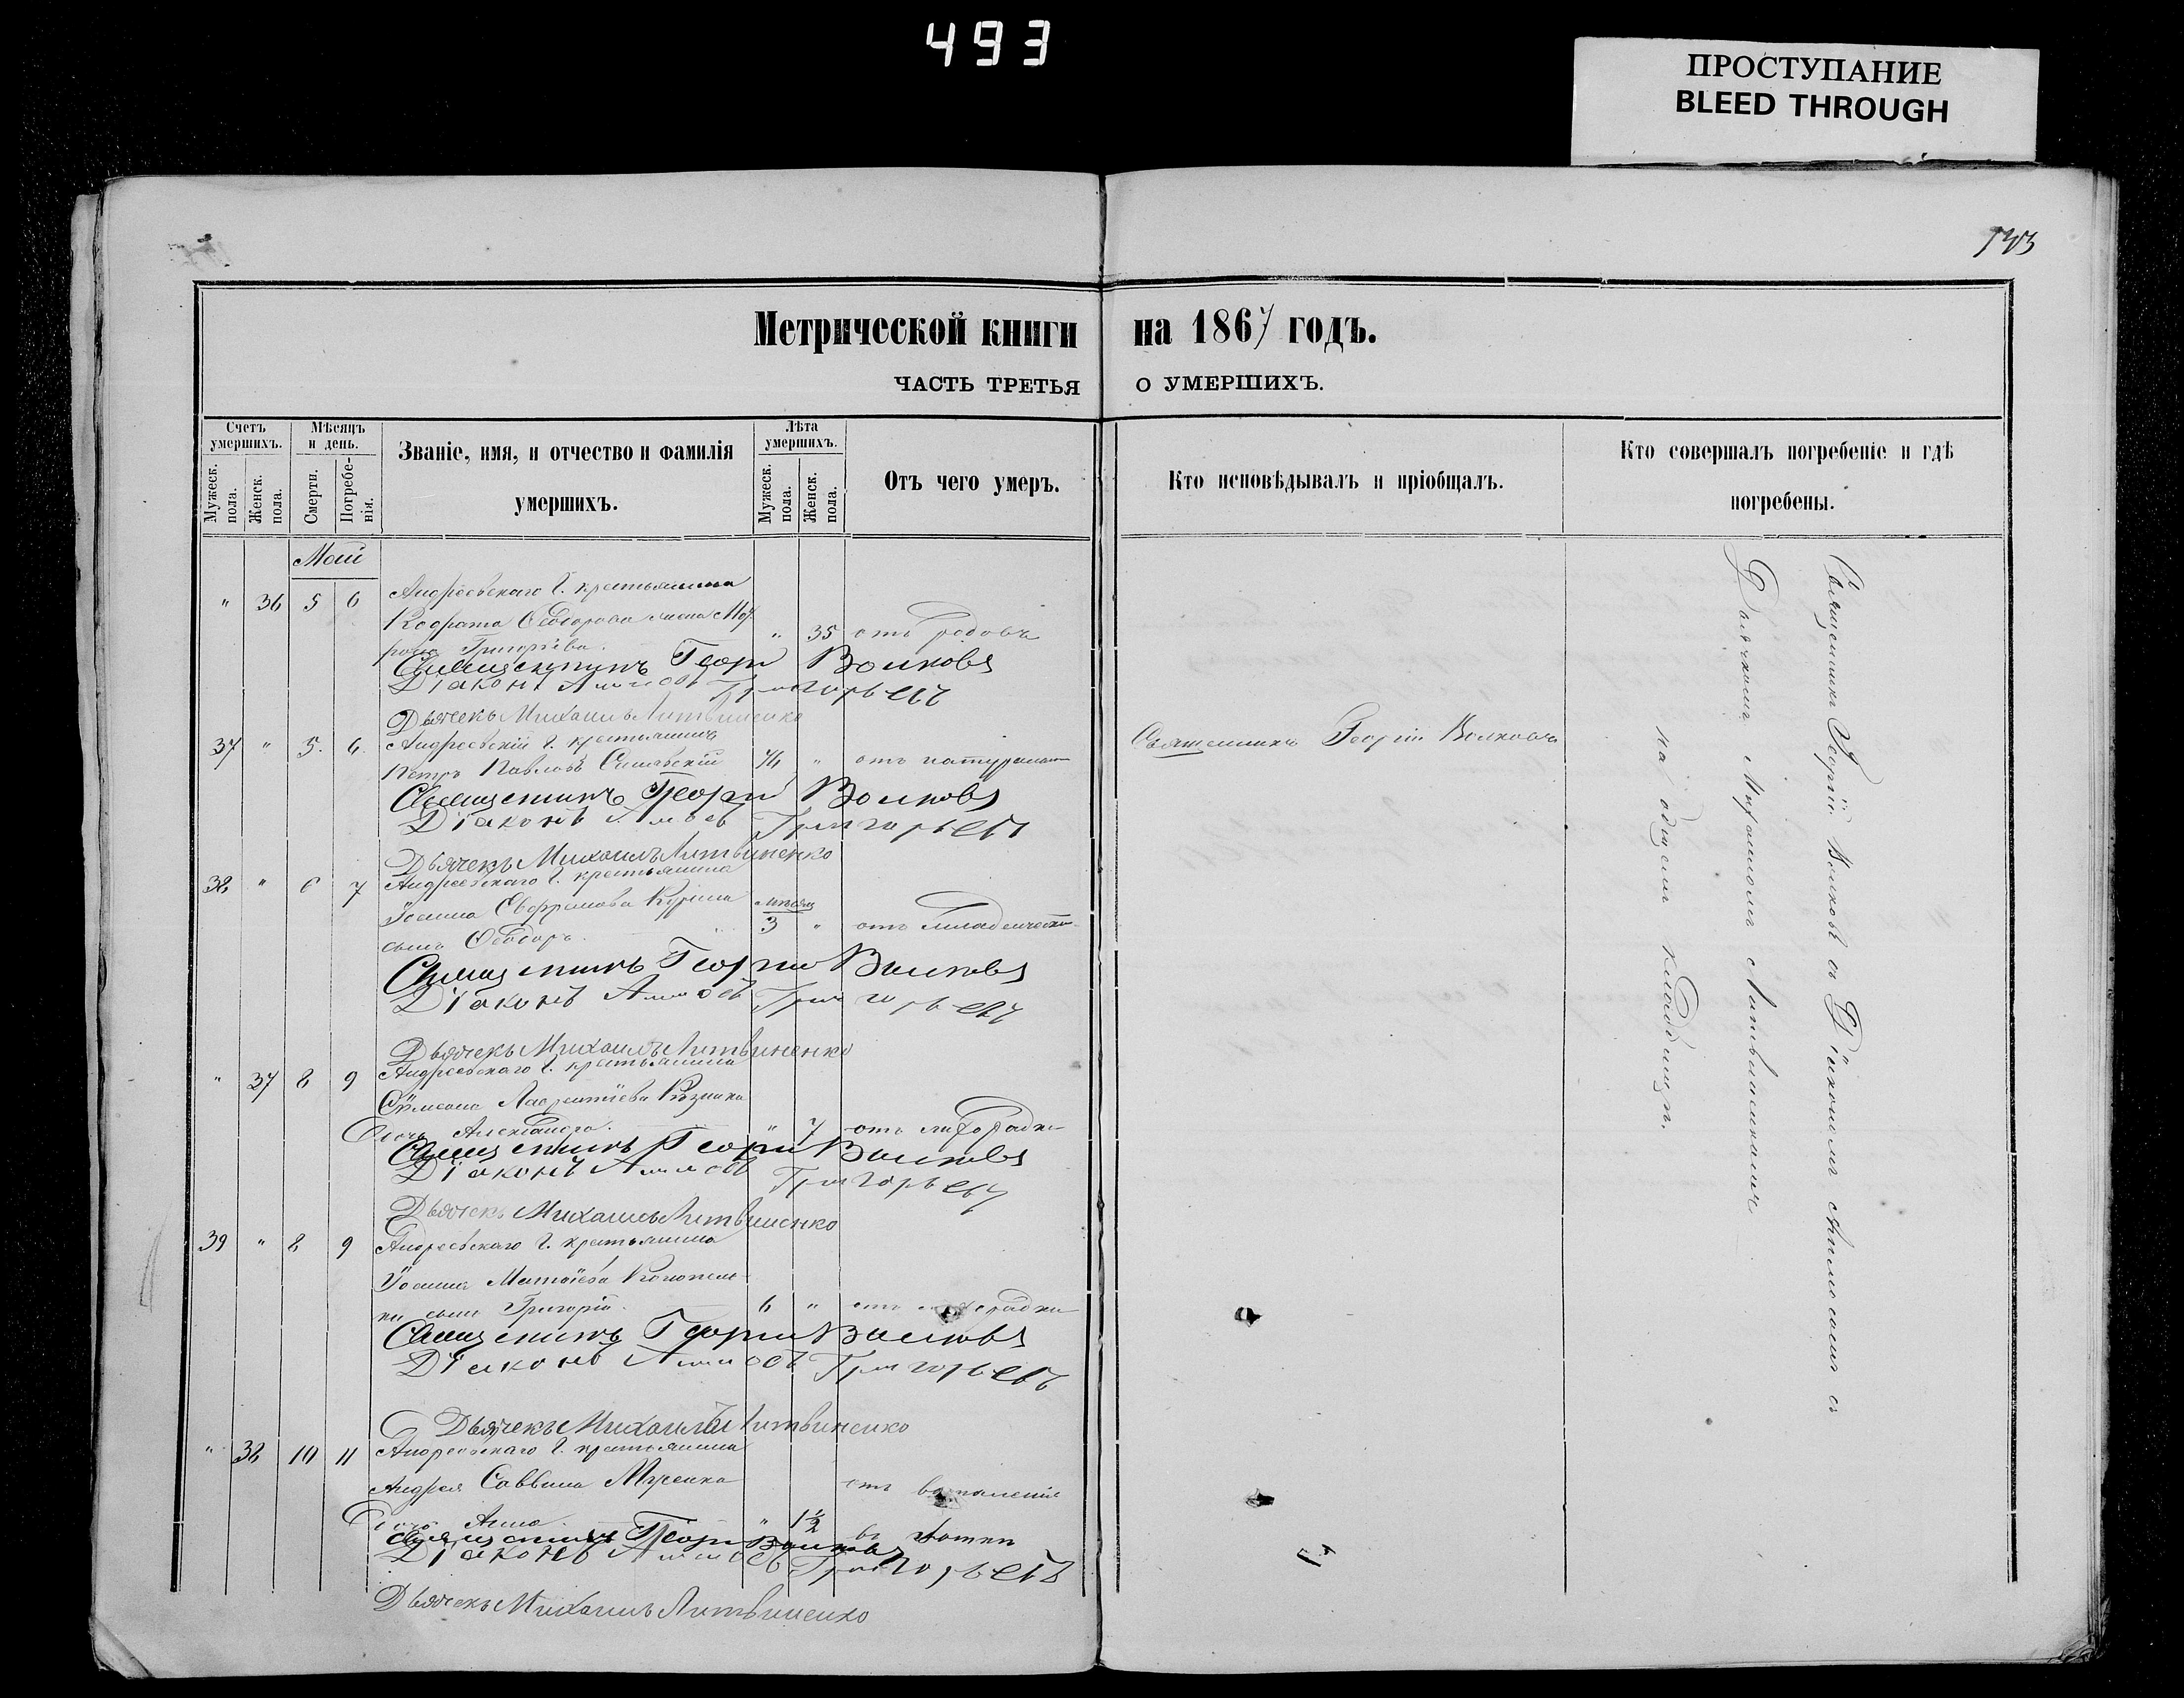 493
ПРОСТУПАНИЕ
BLEED THROUGH
Метрической книги на 1867 годъ.
ЧАСТЬ ТРЕТЬЯ О УМЕРШИХЪ.
Счетъ умершихъ.
Мужеск. пола.
Женск. пола.
Мѣсяцъ и день.
Смерти.
Погребенія.
Званіе, имя, и отчество и фамилія умершихъ.
Лѣта умершихъ.
Мужеск. пола.
Женск. пола.
Отъ чего умеръ.
Кто исповѣдывалъ и пріобщалъ.
Кто совершалъ погребеніе и гдѣ погребены.
Май
" 36 5 6 Андреевскаго С. крестьянина
Кодрата Ѳеодорова жена
Григорiева. " 35 отъ родовъ
Священникъ Георгій Волковъ
Діаконъ Амосъ Григорьевъ
Дьячекъ Михаилъ Литвиненко
37 " 5. 6. Андреевскій С. крестьянинъ
Петръ Павловъ 46 " отъ
Священникъ Георгій Волковъ
Священникъ Георгій Волковъ
Діаконъ Амосъ Григорьевъ
Дьячекъ Михаилъ Литвиненко
38 " 6 7 Андреевскаго С. крестьянина
Іоанна мѣсяц
сынъ Ѳеодоръ. 3 " отъ младенческой
Священникъ Георгій Волковъ
Діаконъ Амосъ Григорьевъ
Дьячекъ Михаилъ Литвиненко
" 37 8 9 Андреевскаго С. крестьянина
Сѵмеона Лаврентіева
дочь Александра. " 7 отъ лихорадки
Священникъ Георгій Волковъ
Діаконъ Амосъ Григорьевъ
Дьячекъ Михаилъ Литвиненко
39 " 8 9 Андреевскаго С. крестьянина
Іоанна Матѳіева
сынъ Григорій. 6 " отъ лихорадки
Священникъ Георгій Волковъ
Діаконъ Амосъ Григорьевъ
Дьячекъ Михаилъ Литвиненко
" 38 10 11 Андреевскаго С. крестьянина
Андрея Саввина отъ воспаленія
дочь Анна. " 1½ въ
Священникъ Георгій Волковъ
Діаконъ Амосъ Григорьевъ
Дьячекъ Михаилъ Литвиненко
Священникъ Георгій Волковъ съ Діакономъ Амосомъ съ
Дьячкомъ Михаиломъ Литвиненкомъ
на общемъ кладбищѣ.